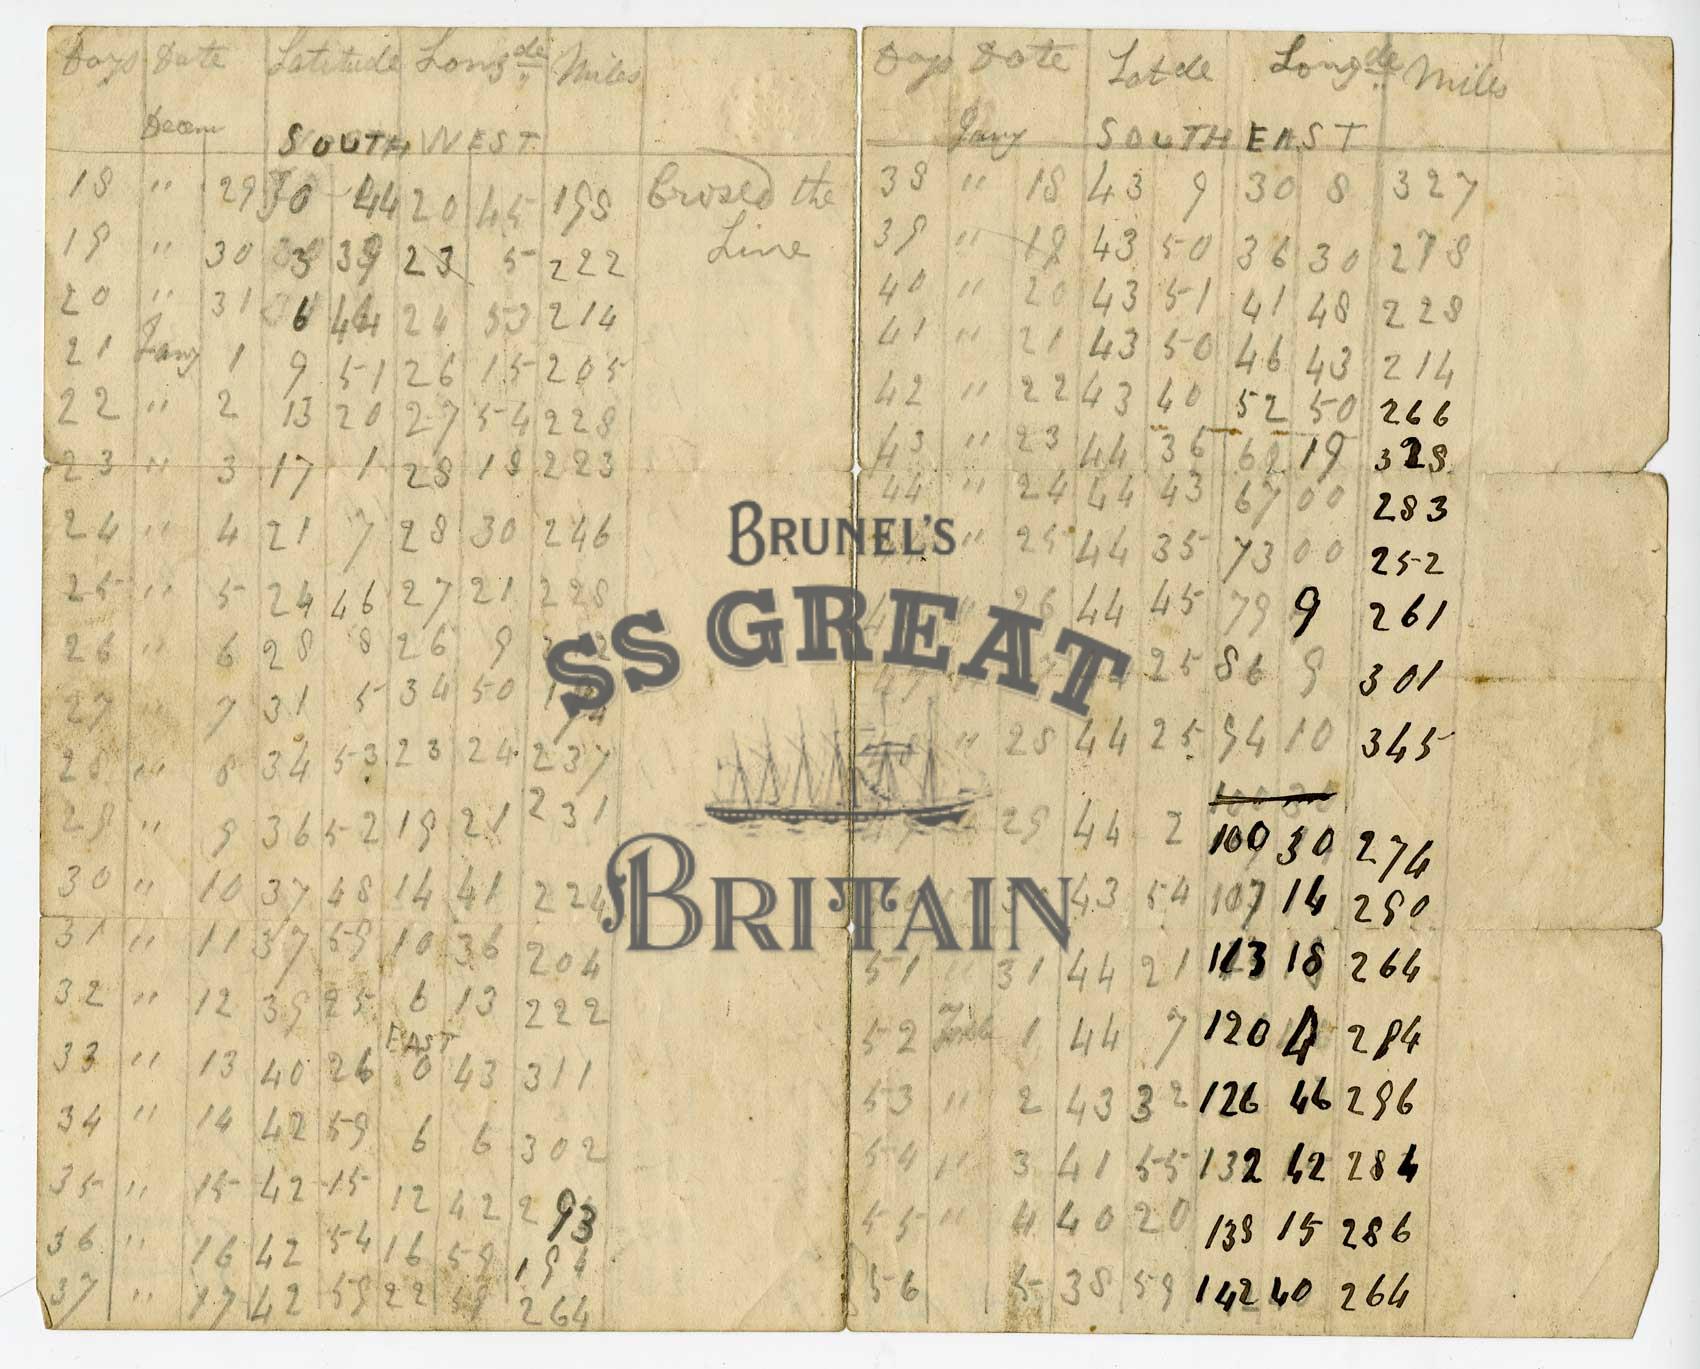 Days Date Latitude Long de Miles
Decem SOUTH WEST
18 " 29 0 44 20 45 198 Crosed the
19 " 30 3 39 23 5 222 Line
20 " 31 6 44 24 53 214
21 Jany 1 9 51 26 15 205
22 " 2 13 20 27 54 228
23 " 3 17 1 28 19 223
24 " 4 21 7 28 30 246
25 " 5 24 46 27 21 228
26 " 6 28 8 26 9
27 " 7 31 5 34 50
28 " 8 34 53 23 24 237
29 " 9 36 52 19 21 231
30 " 10 37 48 14 41 224
31 " 11 37 59 10 36 204
32 " 12 39 25 6 13 222
EAST
33 " 13 40 26 0 43 311
34 " 14 42 59 6 6 302
35 " 15 42 15 12 42 293
36 " 16 42 54 16 59 194
37 " 17 42 59 22 264
Days Date Latde Long de Miles
Jany SOUTH EAST
38 " 18 43 9 30 8 327
39 " 19 43 50 36 30 278
40 " 20 43 51 41 48 228
41 " 21 43 50 46 43 214
42 " 22 43 40 52 50 266
43 " 23 44 36 60 19 328
44 " 24 44 43 67 00 283
" 25 44 35 73 00 252
" 26 44 45 79 9 261
47 25 86 9 301
" 28 44 25 94 10 345
29 44 2 100 30 274
43 54 107 14 290
51 " 31 44 21 113 18 264
52 Feb 1 44 7 120 4 284
53 " 2 43 32 126 46 296
54 " 3 41 55 132 42 284
55 " 4 40 20 138 15 286
56 5 38 59 142 40 264
BRUNEL'S
SS GREAT
BRITAIN